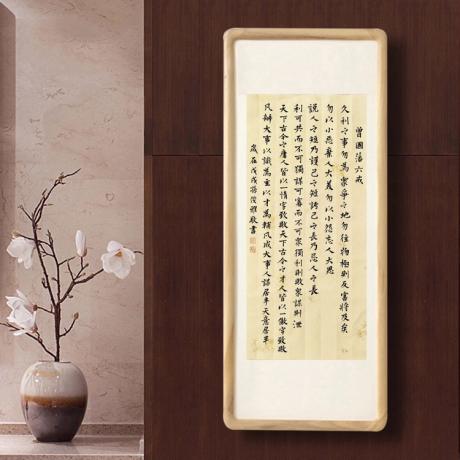 曾國藩六戒
久利之事勿為衆爭之地勿往物極則反害將及矣
勿以小惡棄人大美勿以小怨忘人大恩
説人之短乃護己之短誇己之長乃忌人之長
利可共而不可獨謀可寡而不可衆獨利則敗衆謀則泄
天下古今之庸人皆以一惰字致敗天下古今之才人皆以一傲字致敗
凡辦大事以識為主以才為輔凡成大事人謀居半天意居半
歲在戊戌敬書